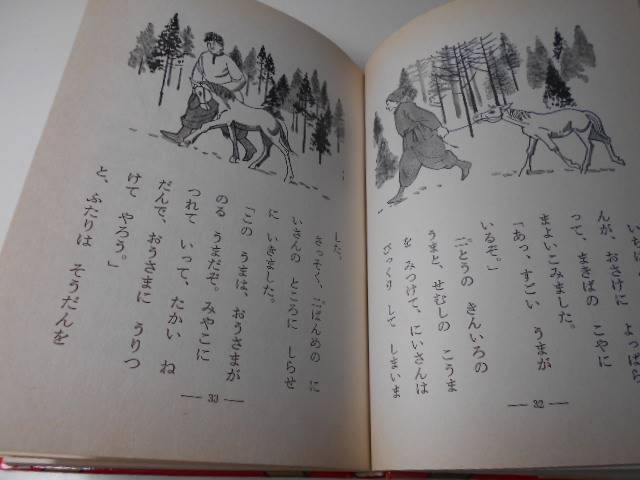 んが、おさけに よっぱら
って、まきばの こやに
まよいこみました。
「あっ、すごい うまが
いるぞ。」
二とうの きんいろの
うまと、せむしの こうま
を みつけて、にいさんは
びっくり して しまいま
32
した。
さっそく、二ばんめの に
いさんの ところに しらせ
に いきました。
「この うまは、おうさまが
のる うまだぞ。みやこに
つれて いって、たかい ね
だんで、おうさまに うりつ
けて やろう。」
と、ふたりは そうだんを
33